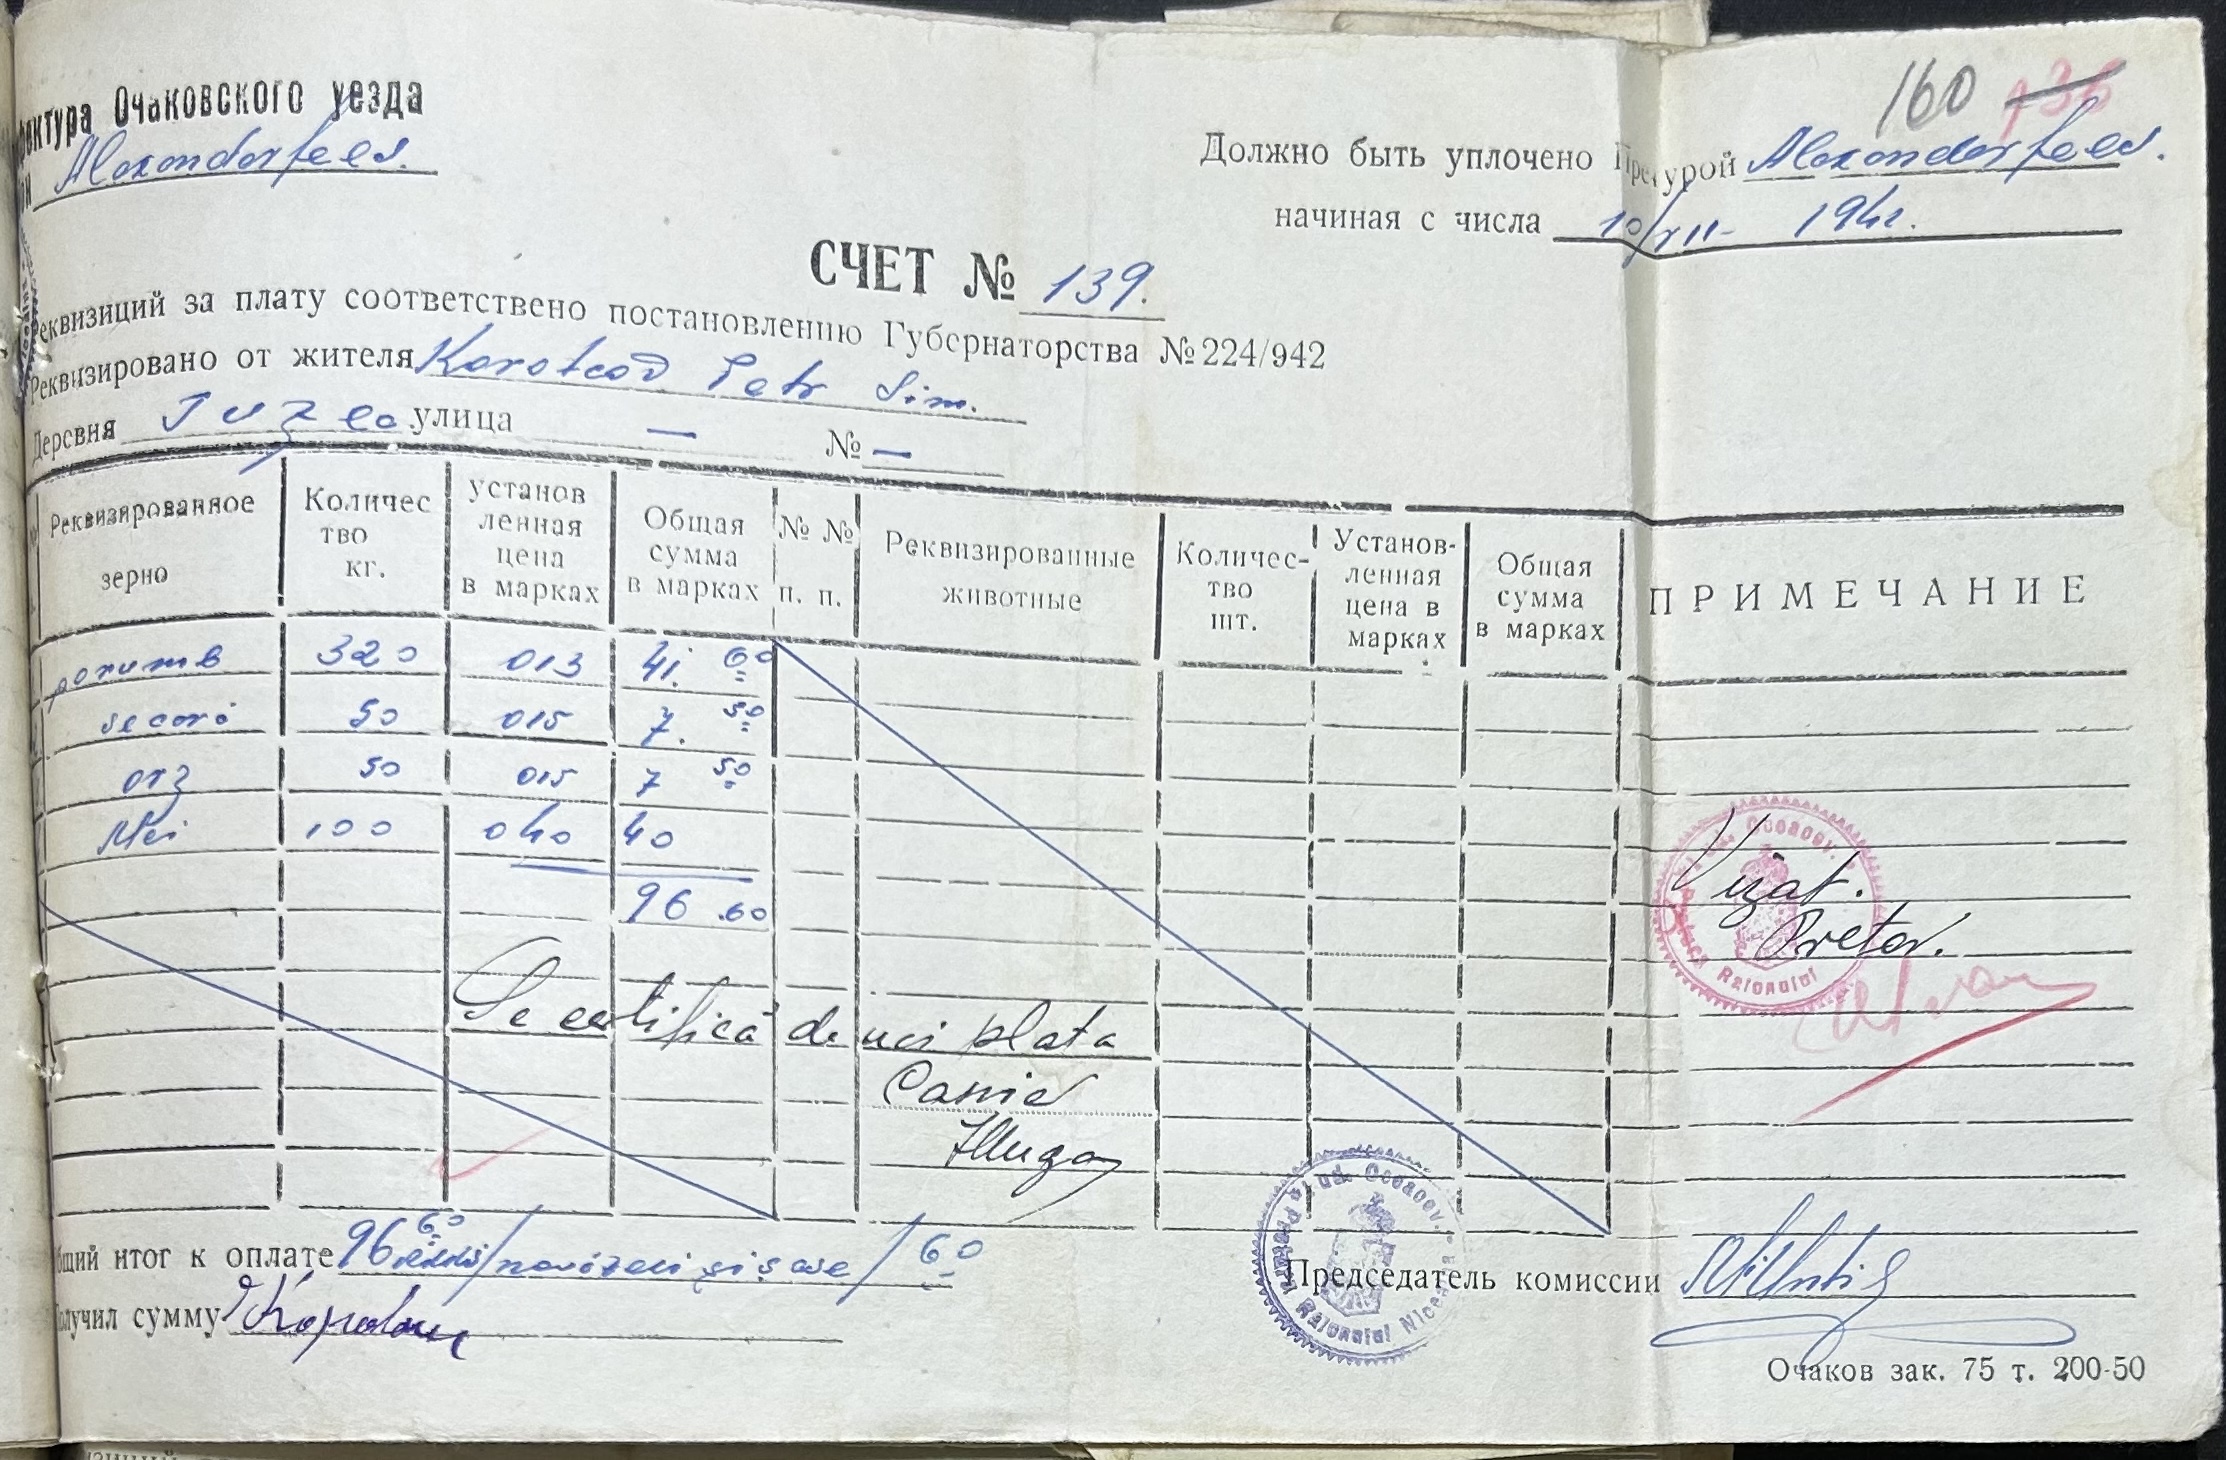 160 136
фектура Очаковского уезда
он Alexanderfeld.
Должно быть уплочено Претурой Alexanderfeld.
начиная с числа 10/XII- 1942.
СЧЕТ № 139.
Реквизиций за плату соответствено постановлению Губернаторства № 224/942
Реквизировано от жителя Korotcod Petr Sim.
Деревня Tuzla улица — № —
Реквизированное зерно Количес тво кг. установ ленная цена в марках Общая сумма в марках № № п. п. Реквизированные животные Количес- тво шт. Установ- ленная цена в марках Общая сумма в марках ПРИМЕЧАНИЕ
porumb 320 013 41. 60
secară 50 015 7. 50
orz 50 015 7 50
Mei 100 040 40
96 .60
Vizat.
Pretor.
Se certifică de noi plata
Casier
Общий итог к оплате 96 60 /nouăzeci și șase/ 60
Получил сумму
Председатель комиссии
Очаков зак. 75 т. 200-50